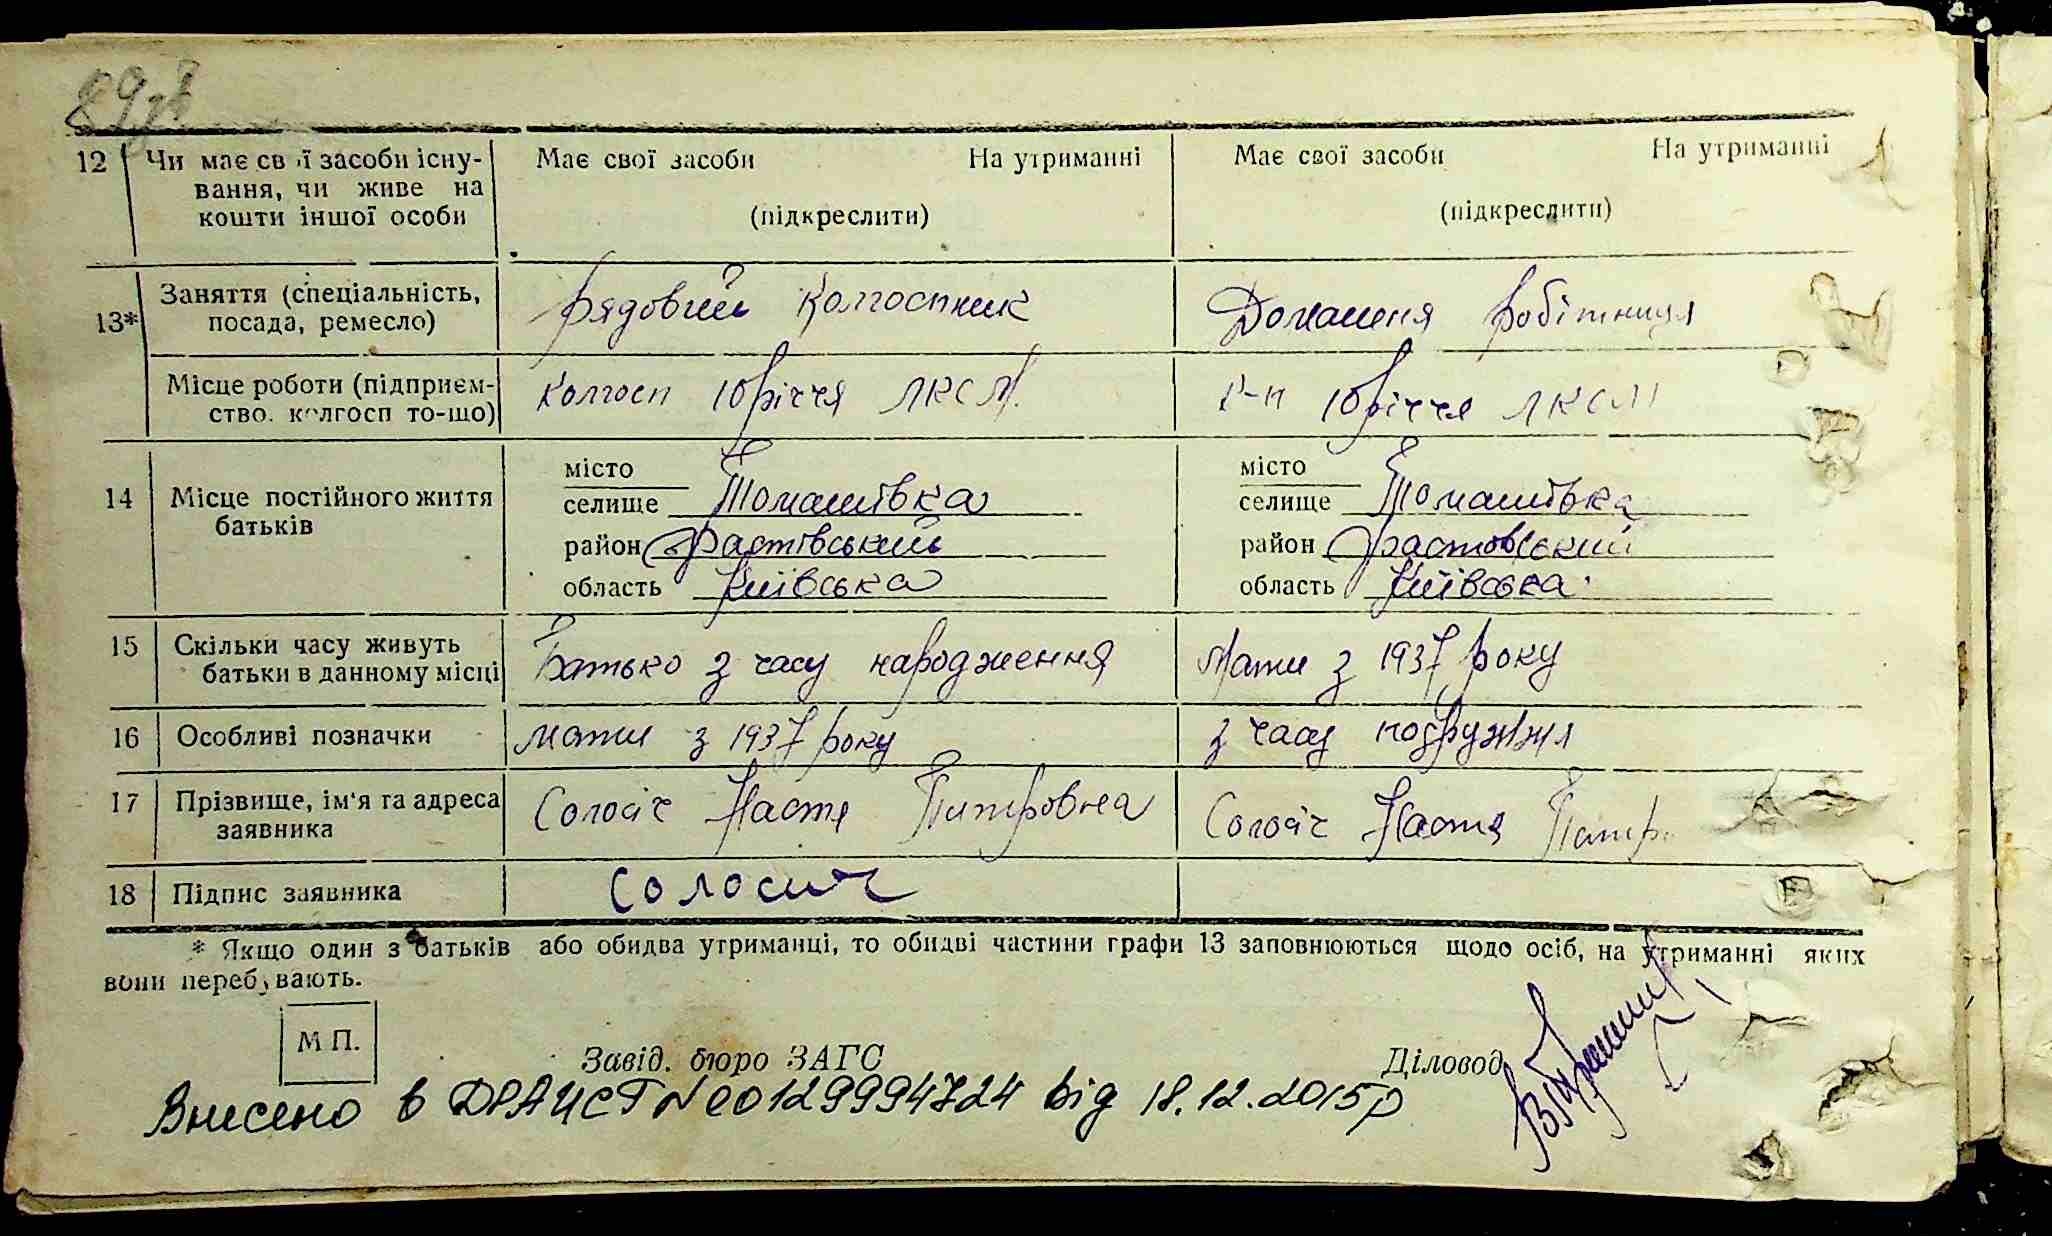 89зв
12 Чи має свої засоби існу- Має свої засоби На утриманні Має свої засоби На утриманні
вання, чи живе на
кошти іншої особи (підкреслити) (підкреслити)
13* Заняття (спеціальність, Рядовий колгоспник Домашня робітниця
посада, ремесло)
Місце роботи (підприєм- Колгосп 10 річчя ЛКСМ К-п 10 річчя ЛКСМ
ство, колгосп то-що)
14 Місце постійного життя батьків
місто місто
селище Томашівка селище Томашівка
район Фастівський район Фастовський
область Київська область Київська
15 Скільки часу живуть Батько з часу народження Мати з 1937 року
батьки в данному місці
16 Особливі позначки мати з 1937 року з часу подружжя
17 Прізвище, ім'я та адреса Солосіч Настя Питровна Солосіч Настя Питр
заявника
18 Підпис заявника Солосич
* Якщо один з батьків або обидва утриманці, то обидві частини графи 13 заповнюються щодо осіб, на утриманні яких
вони перебувають.
М П.
Завід. бюро ЗАГС Діловод
Внесено в ДРАЦСГ №00129994724 від 18.12.2015р